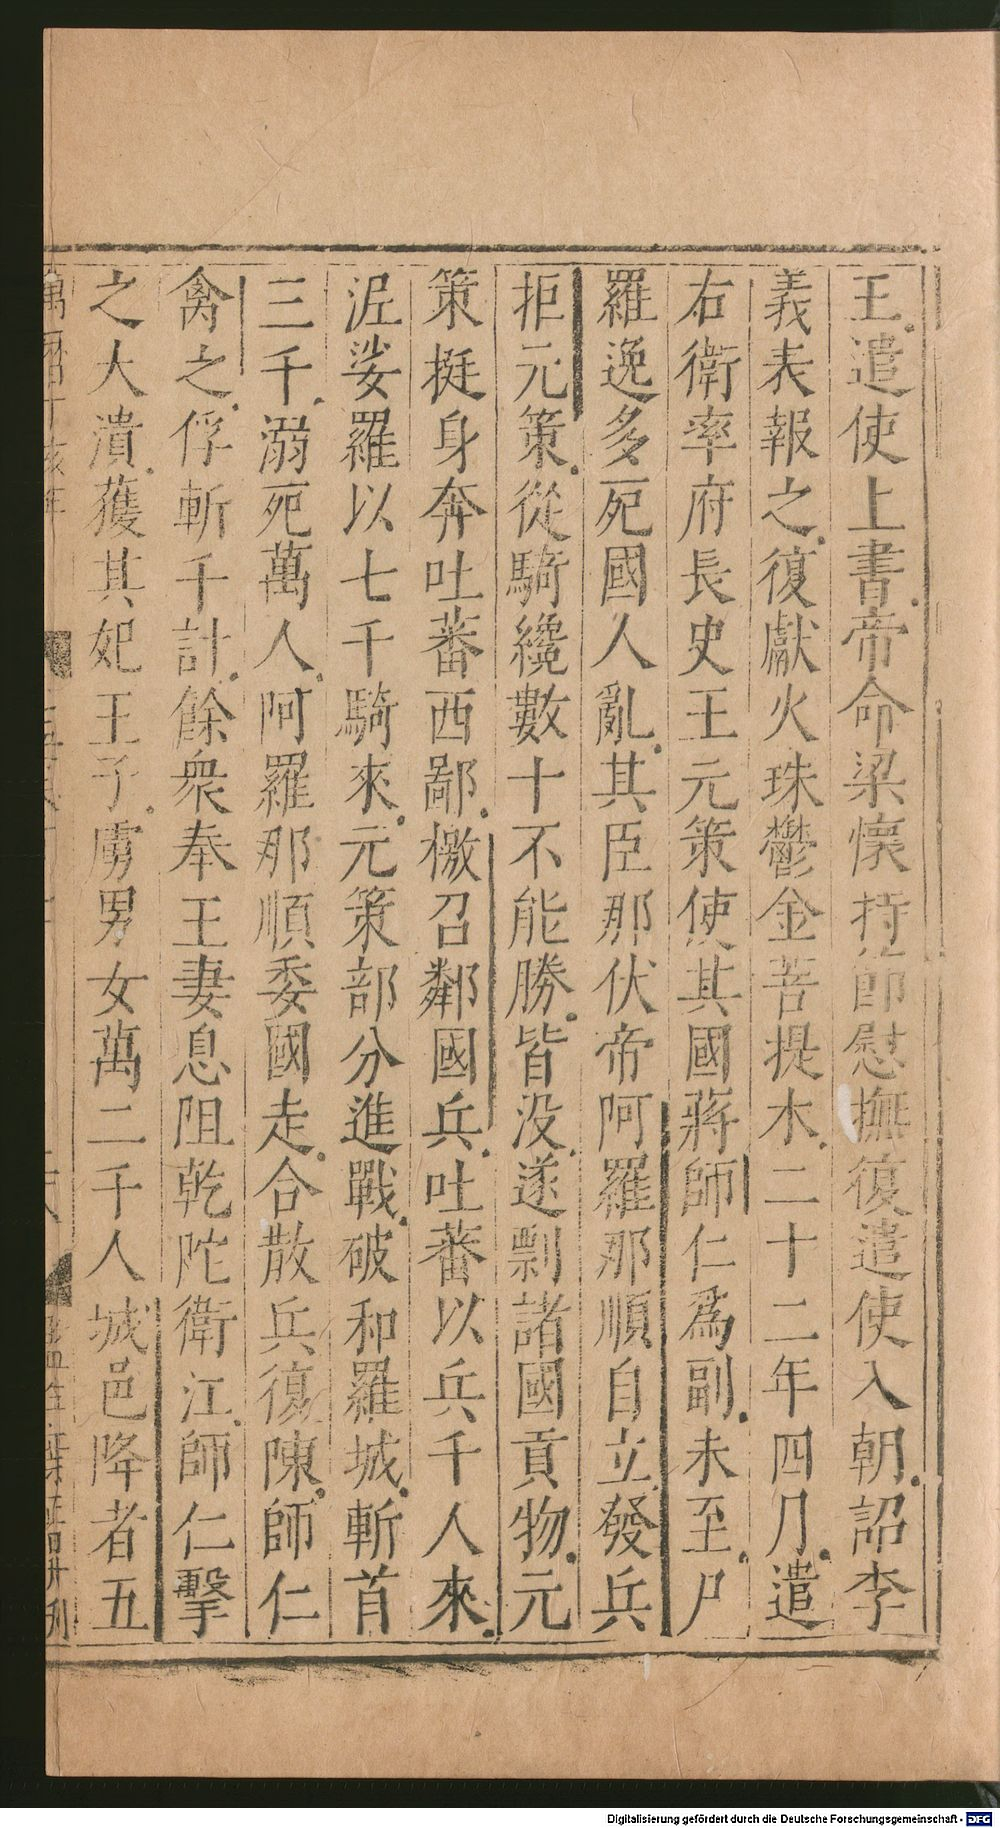 王遣使上書帝命梁懷持節慰撫復遣使入朝詔李
義表報之復獻火珠鬱金菩提木二十二年四月遣
右衛率府長史王元策使其國蔣師仁爲副未至尸
羅逸多死國人亂其臣那伏帝阿羅那順自立發兵
拒元策從騎纔數十不能勝皆没遂剽諸國貢物元
策挺身奔吐蕃西鄙檄召鄰國兵吐蕃以兵千人來
泥娑羅以七千騎來元策部分進戰破和羅城斬首
三千溺死萬人阿羅那順委國走合散兵復陳師仁
禽之俘斬千計餘衆奉王妻息阻乾陀衛江師仁擊
之大潰獲其妃王子虜男女萬二千人城邑降者五
Digitalisierung gefördert durch die Deutsche Forschungsgemeinschaft - DFG